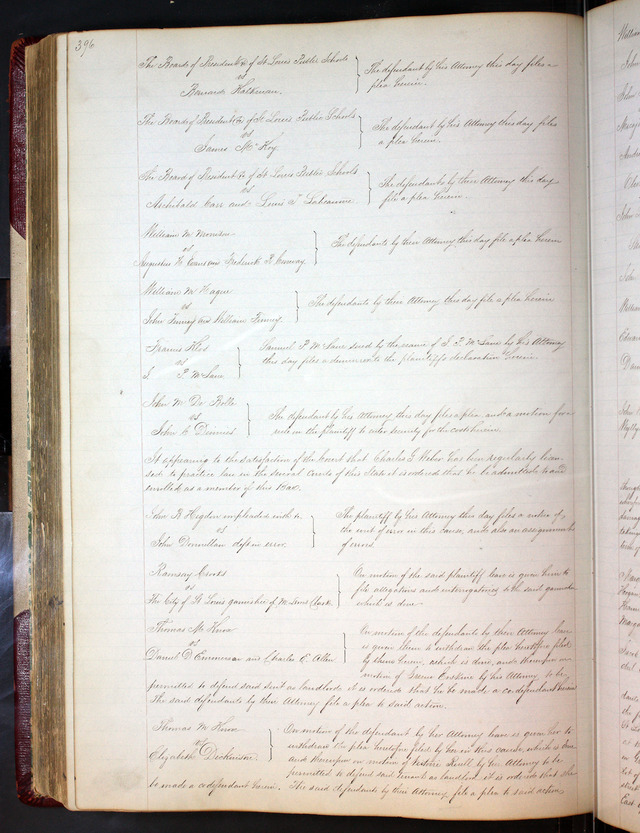 396
The Board of President &c of St Louis Public Schools
vs
Bernard Kalkman.
The defendant by his Attorney this day files a
plea herein.
The Board of President &c of St Louis Public Schools
vs
James McKoy
The defendant by his Attorney this day files
a plea herein.
The Board of President &c of St Louis Public Schools
vs
Archibald Carr and Louis T. Labeaume.
The defendants by their Attorney this day
file a plea herein.
William M Morrison
vs
Augustus H Evans and Frederick P. Conway.
The defendants by their Attorney this day file a plea herein
William M Hague
vs
John Finney and William Finney.
The defendants by their Attorney this day file a plea herein
Francis
vs
P. M Lane
Samuel P. M Lane sued by the name of P. M Lane by his Attorney
this day files a demurrer to the plaintiffs declaration herein.
John M De Bolle
vs
John C
The defendant by his Attorney this day files a plea and a motion for a
rule on the plaintiff to enter security for the costs herein.
It appearing to the satisfaction of the Court that Charles G. has been regularly licen-
sed to practice law in the several Courts of this State it is ordered that he be admitted to and
enrolled as a member of this Bar.
John B Higdon impleaded with &c.
vs
John Donnellan deft in error.
The plaintiff by his Attorney this day files a notice of
the writ of error in this cause, and also an assignment
of errors.
Ramsay Crooks
vs
The City of St Louis garnishee of Wm Lewis Clark.
On motion of the said plaintiff leave is given him to
file allegations and interrogatories to the said garnishee
which is done
Thomas M.
vs
Daniel D Emmerson and Charles C. Allen
On motion of the defendants by their Attorney leave
is given them to withdraw the plea heretofore filed
by them herein, which is done, and thereupon on
motion of Erskine by his Attorney to be
permitted to defend said suit as landlord it is ordered that he be made a co-defendant herein
The said defendants by their Attorney file a plea to said action.
Thomas M.
vs
Elizabeth Dickinson.
On motion of the defendant by her Attorney leave is given her to
withdraw the plea heretofore filed by her in this cause, which is done
and thereupon on motion of by her Attorney to be
permitted to defend said as landlord it is ordered that she
be made a codefendant herein. The said defendants by their Attorney file a plea to said action